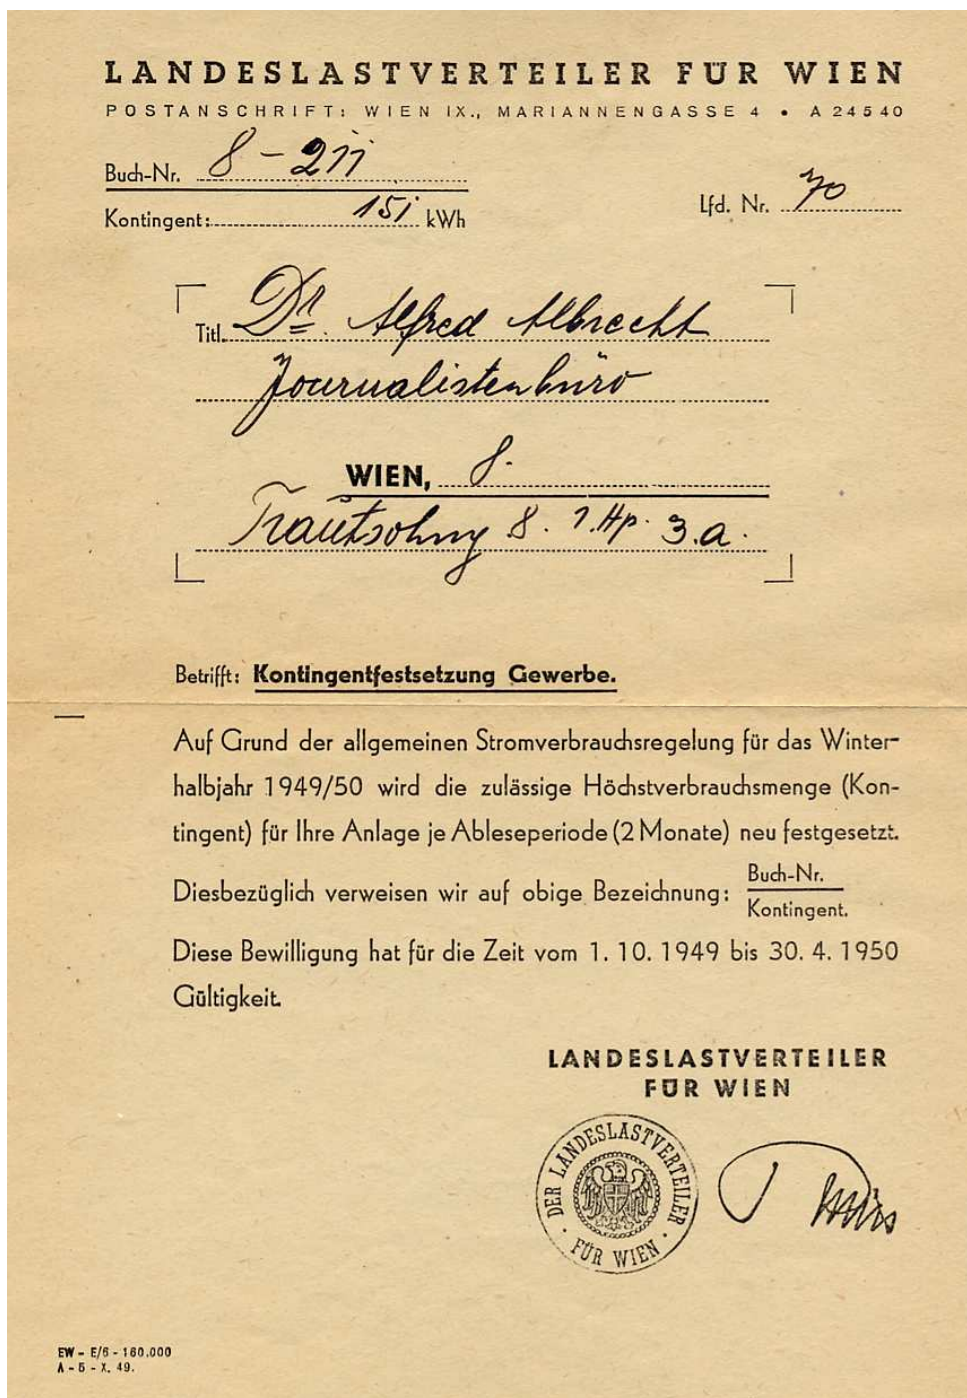 LANDESLASTVERTEILER FÜR WIEN
POSTANSCHRIFT: WIEN IX., MARIANNENGASSE 4 • A 24540
Buch-Nr. 8-211
Kontingent: 151 kWh
Lfd. Nr. 70
Titl. Dr. Alfred Albrecht
Journalistenbüro
WIEN, 8.
Trautsohng 8. 1. Hp. 3.a.
Betrifft: Kontingentfestsetzung Gewerbe.
Auf Grund der allgemeinen Stromverbrauchsregelung für das Winter-
halbjahr 1949/50 wird die zulässige Höchstverbrauchsmenge (Kon-
tingent) für Ihre Anlage je Ableseperiode (2 Monate) neu festgesetzt.
Diesbezüglich verweisen wir auf obige Bezeichnung: Buch-Nr.
Kontingent.
Diese Bewilligung hat für die Zeit vom 1. 10. 1949 bis 30. 4. 1950
Gültigkeit.
LANDESLASTVERTEILER
FÜR WIEN
DER LANDESLASTVERTEILER
· FÜR WIEN ·
EW - E/6 - 160.000
A - 5 - X. 49.